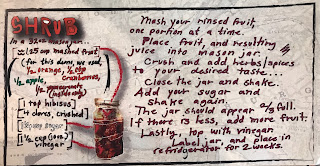 SHRUB
In a 32oz mason jar...
1.25 cup mashed fruit
(for this demo, we used
1/2 orange, 1/2 cup
cranberries,
1/2 apple,
1/2 pomegranate
(inside only)
1 top hibiscus
4 cloves, crushed
1 1/4 cup (10oz)
vinegar
Mash your rinsed fruit,
one portion at a time.
Place fruit, and resulting
juice into mason jar.
Crush and add herbs/spices
to your desired taste...
Close the jar and shake.
Add your sugar and
shake again.
The jar should appear 2/3 full.
If there is less, add more fruit.
Lastly, top with vinegar.
Label jar, and place in
refridgerator for 2 weeks.